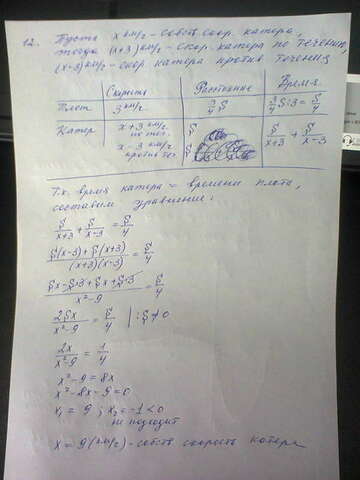 12. Пусть x км/ч - собств. скор. катера,
тогда (x+3) км/ч - скор. катера по течению,
(x-3) км/ч - скор. катера против течения
Скорость Расстояние Время
Плот 3 км/ч 3/4 S 3/4 S:3 = S/4
Катер x+3 км/ч по теч. S S/(x+3) + S/(x-3)
x-3 км/ч против теч. S
Т.к. время катера = времени плота,
составим уравнение:
S/(x+3) + S/(x-3) = S/4
(S(x-3)+S(x+3))/((x+3)(x-3)) = S/4
(Sx-S·3+Sx+S·3)/(x²-9) = S/4
2Sx/(x²-9) = S/4 |:S≠0
2x/(x²-9) = 1/4
x²-9=8x
x²-8x-9=0
x₁ = 9 ; x₂=-1<0
не подходит
x = 9 (км/ч) - собств скорость катера